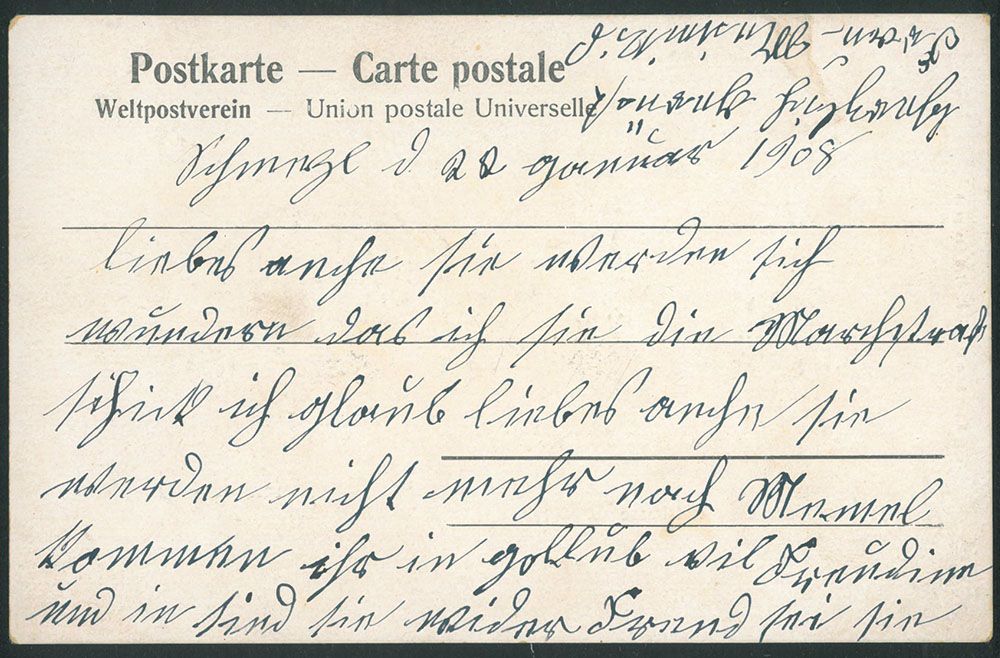 Postkarte — Carte postale
Weltpostverein — Union postale Universelle
Schmerzl d 22 Januar 1908
liebes anche sie werden sich
wundern das ich sie die Marchstraß
schick ich glaub liebes anche sie
werden nicht mehr nach Memel
kommen ihr in gollub vil Freudine
und in sind sie wider Freud sei sie